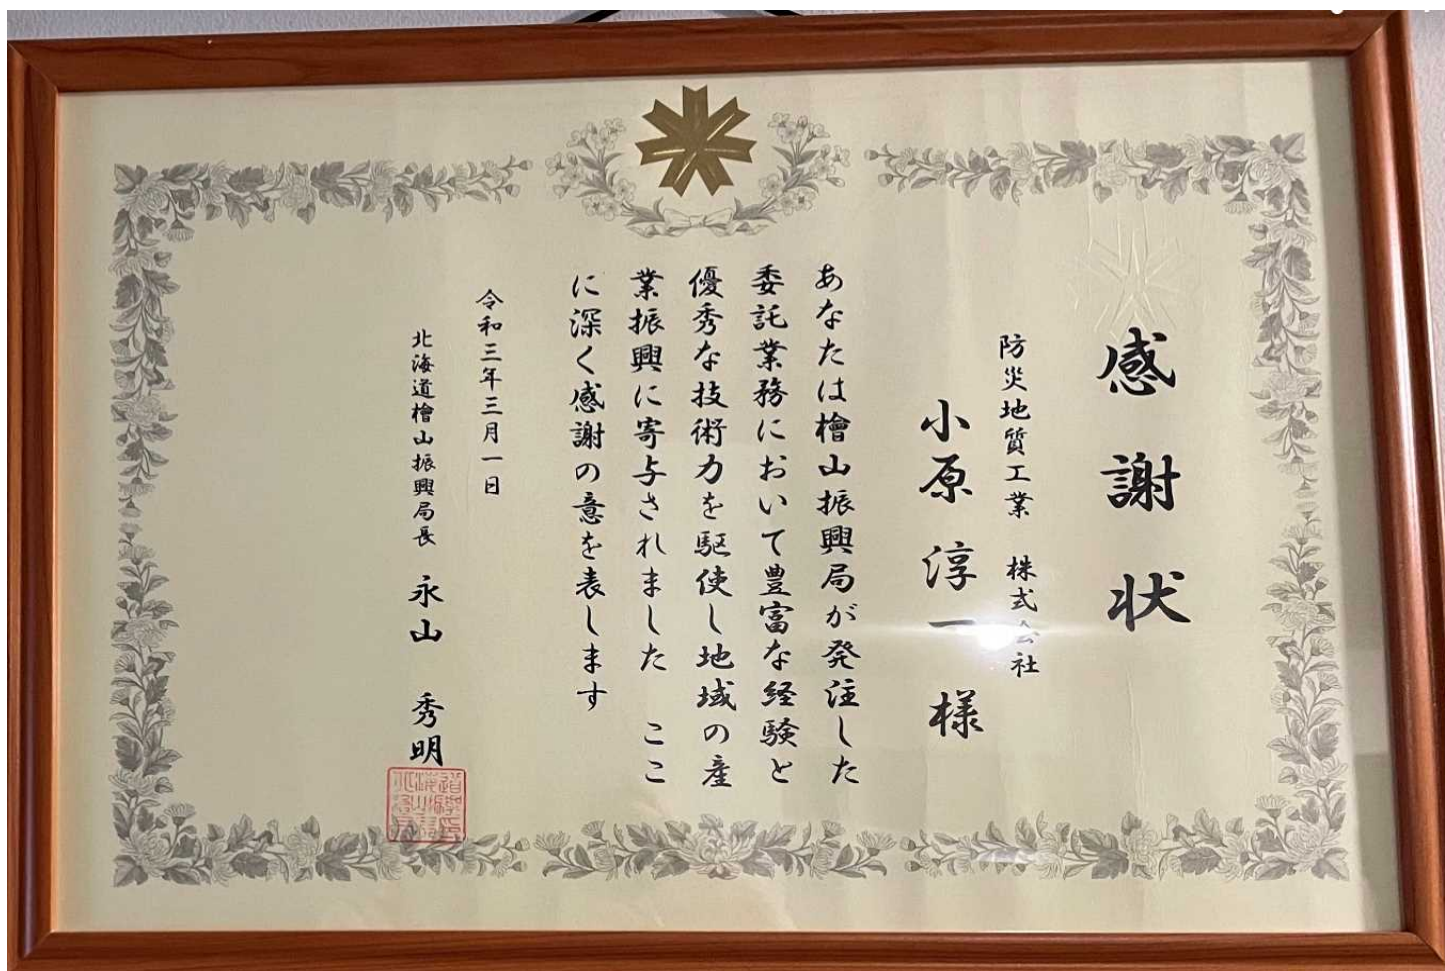 感謝状
防災地質工業 株式会社
小原淳一 様
あなたは檜山振興局が発注した
委託業務において豊富な経験と
優秀な技術力を駆使し地域の産
業振興に寄与されました ここ
に深く感謝の意を表します
令和三年三月一日
北海道檜山振興局長 永山 秀明